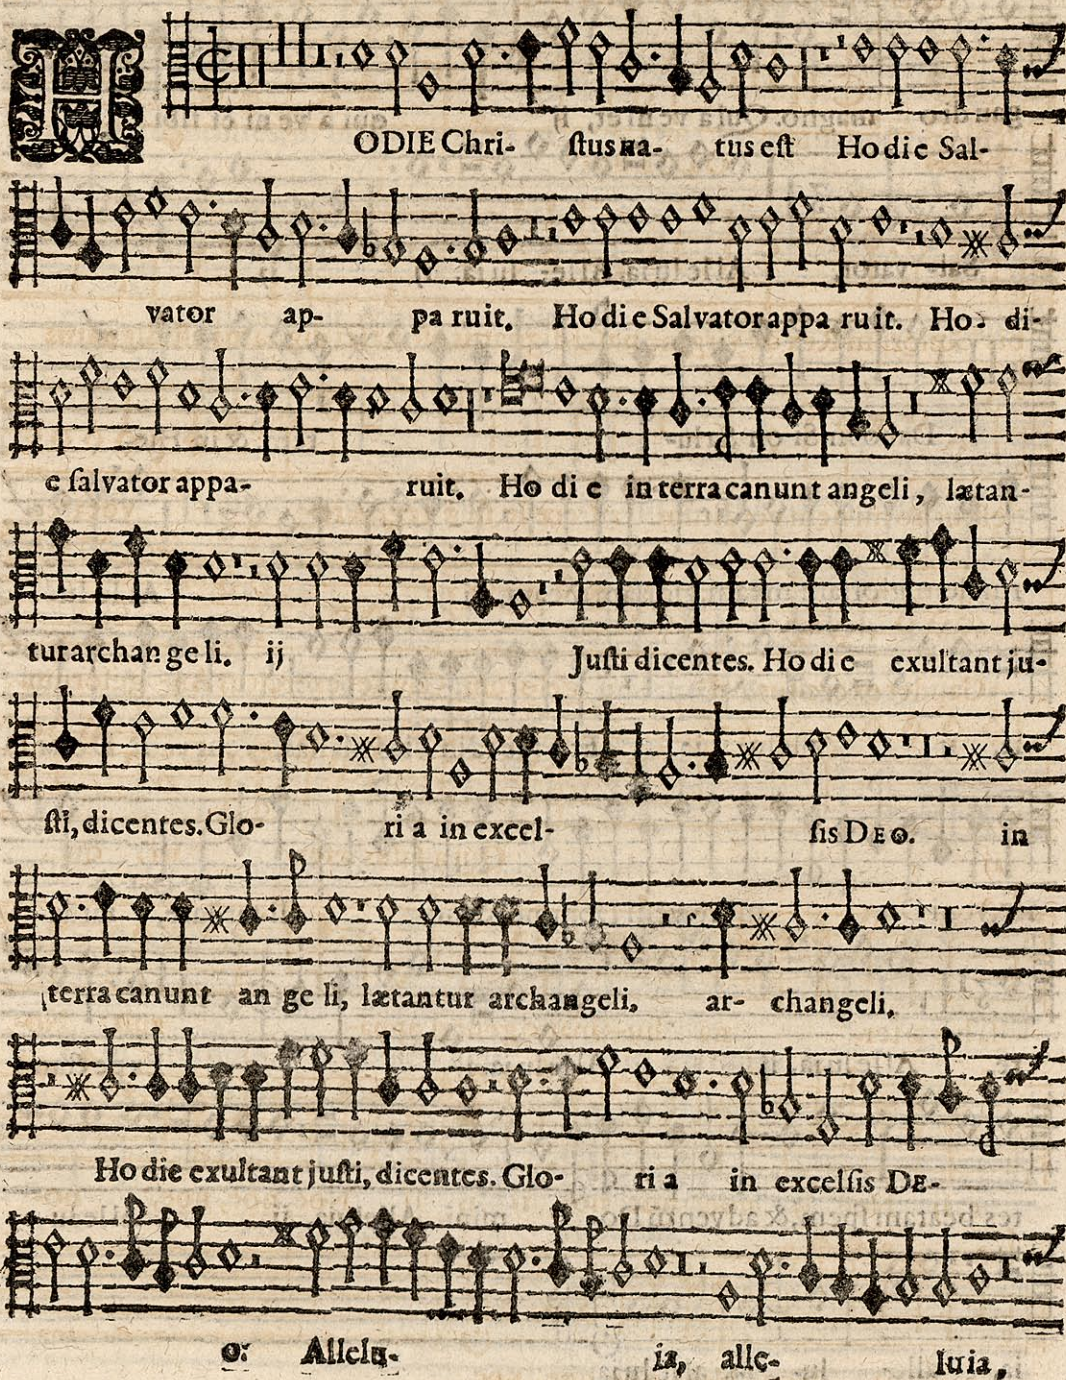 HODIE Chri- ſtus na- tus eſt Hodie Sal-
vator ap- paruit. Hodie Salvator apparuit. Ho- di-
e ſalvator appa- ruit. Hodie in terra canunt angeli, lætan-
tur archangeli. ij Juſti dicentes. Hodie exultant ju-
ſti, dicentes. Glo- ria in excel- ſis DEO. in
terra canunt angeli, lætantur archangeli, ar- changeli.
Hodie exultant juſti, dicentes. Glo- ria in excelſis DE-
o: Allelu- ia, alle- luia,